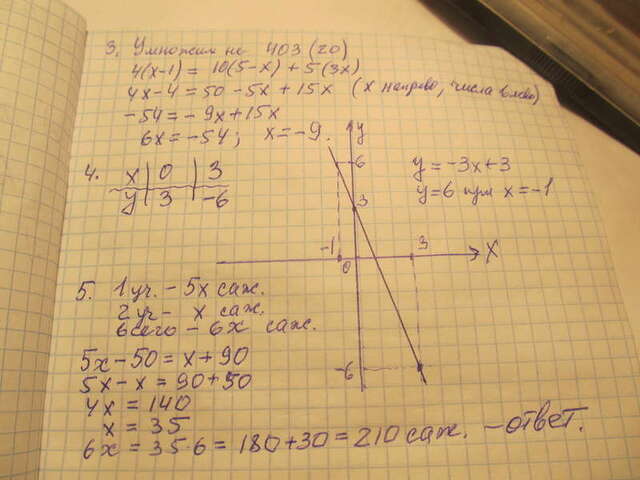 3. Умножим на НОЗ (20)
4(x-1) = 10(5-x) + 5(3x)
4x-4 = 50 - 5x + 15x (x направо, числа влево)
-54 = -9x + 15x
6x = -54; x = -9.
4. x | 0 | 3
y | 3 | -6
y
6
3
-1
0
3
X
-6
y = -3x+3
y=6 при x=-1
5. 1 уч. - 5x саж.
2 уч - x саж.
всего - 6x саж.
5x-50 = x+90
5x-x = 90+50
4x = 140
x = 35
6x = 35·6 = 180+30 = 210 саж. - ответ.